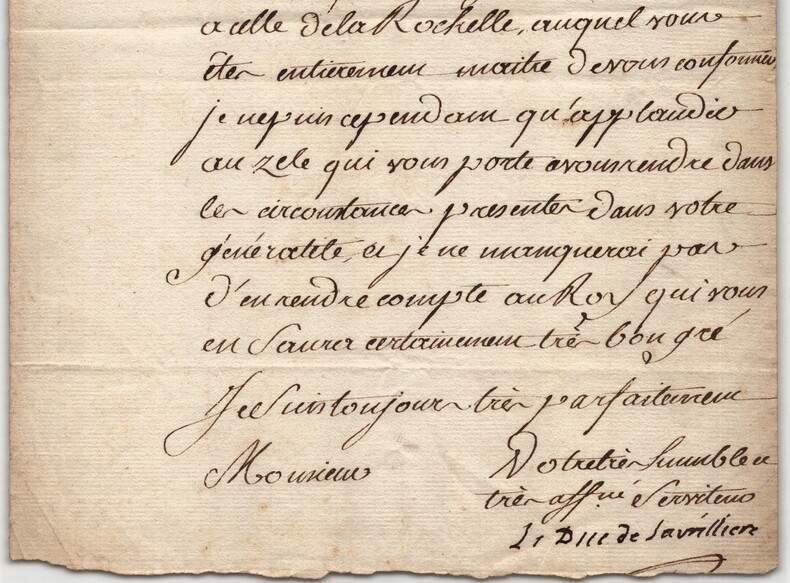 a celle de la Rochelle, auquel vous
êtes entierement maitre de vous conformer,
je ne puis cependant qu'applaudir
au zele qui vous porte a vous rendre dans
les circonstances presentes dans votre
généralité, et je ne manquerai pas
d'en rendre compte au Roy qui vous
en Saura certainement très bon gré
Je Suis toujours très parfaitement
Monsieur
Votre très humble et
très affné Serviteur
Le Duc de Lavrilliere